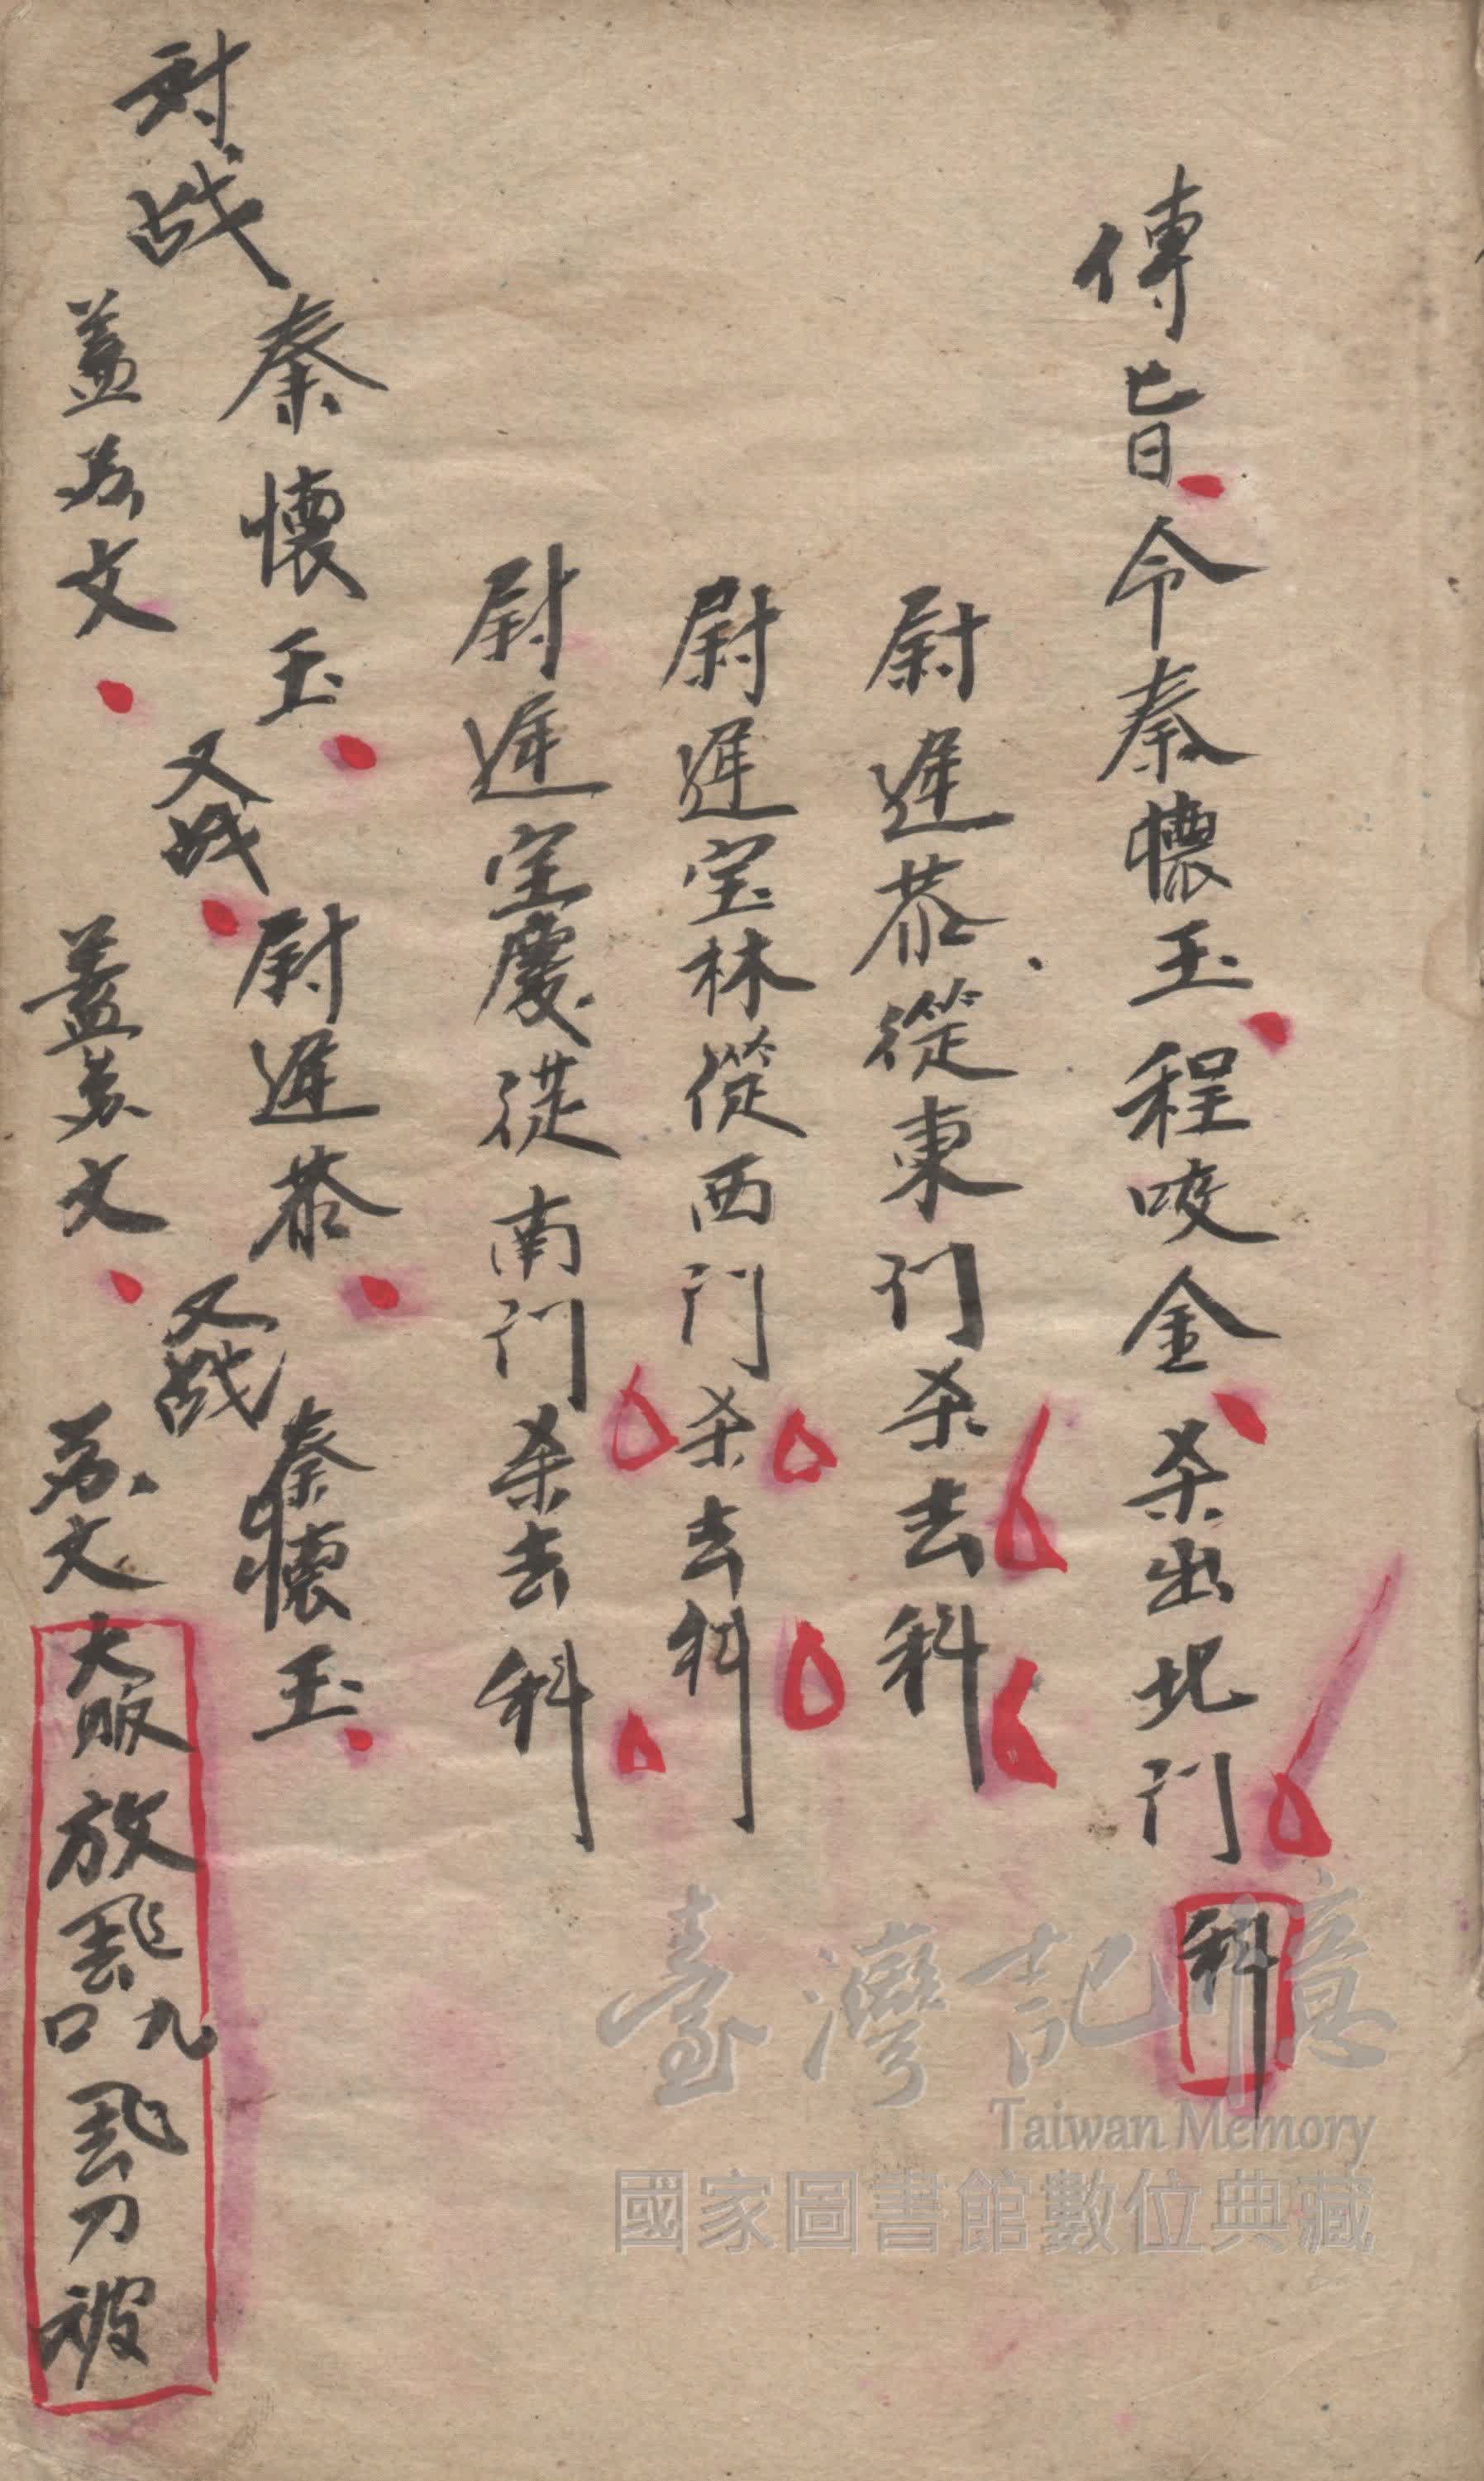 傳旨令秦懷玉程咬金杀出北门科
尉遲恭從東门杀去科
尉遲宝林從西门杀去科
尉遲宝慶從南门杀去科
对战
秦懷玉
盖苏文
又战
尉遲恭
盖苏文
又战
秦懷玉
苏文大敗放起九口飛刀被
臺灣記憶
Taiwan Memory
國家圖書館數位典藏